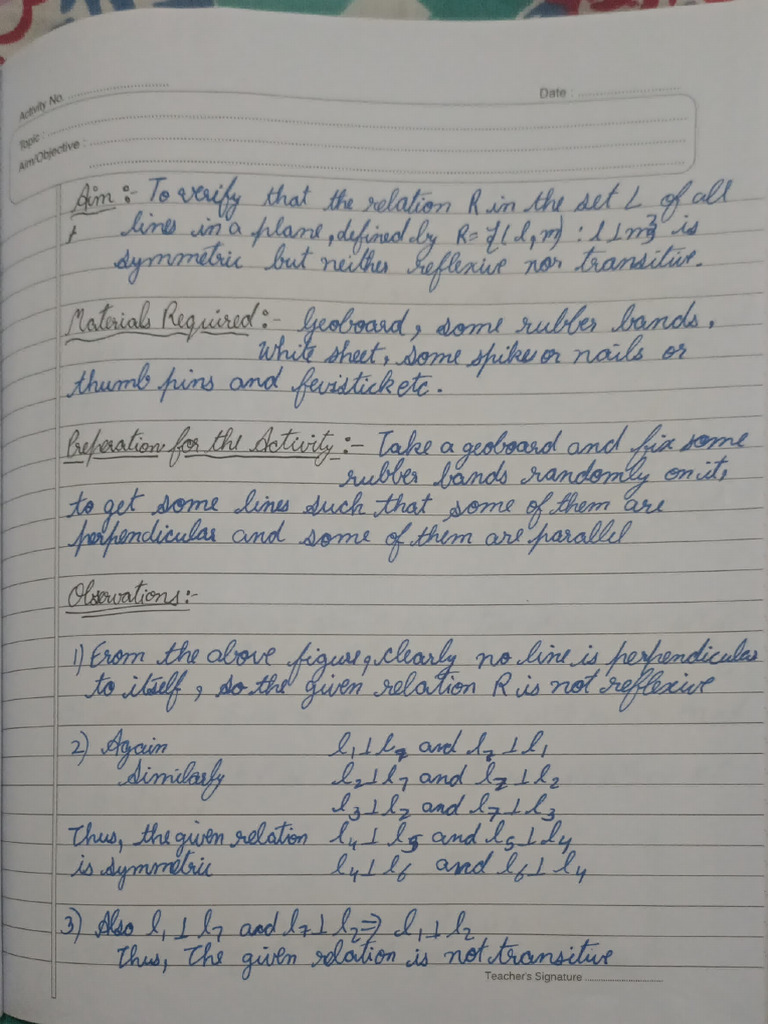 Activity No.
Date :
Topic :
Aim/Objective :
Aim :- To verify that the relation R in the set L of all
lines in a plane, defined by R={(l,m) : l⊥m} is
symmetric but neither reflexive nor transitive.
Materials Required :- Geoboard, some rubber bands,
White sheet, some spike or nails or
thumb pins and fevistick etc.
Preperation for the Activity :- Take a geoboard and fix some
rubber bands randomly on it,
to get some lines such that some of them are
perpendicular and some of them are parallel
Observations :-
1) From the above figure, clearly no line is perpendicular
to itself, so the given relation R is not reflexive
2) Again l₁⊥l₇ and l₇⊥l₁
Similarly l₂⊥l₇ and l₇⊥l₂
l₃⊥l₇ and l₇⊥l₃
Thus, the given relation l₄⊥l₅ and l₅⊥l₄
is symmetric l₄⊥l₆ and l₆⊥l₄
3) Also l₁⊥l₇ and l₇⊥l₂ ⇒ l₁⊥l₂
Thus, The given relation is not transitive
Teacher's Signature